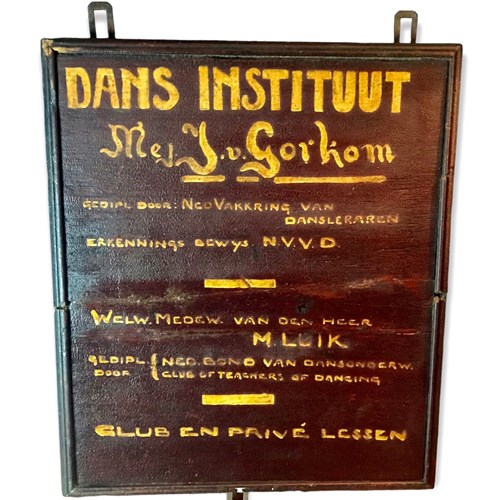 DANS INSTITUUT
Mej J. v. Gorkom
GEDIPL. DOOR: NED VAKKRING VAN
DANSLERAREN
ERKENNINGS BEWYS N.V.V.D.
WELW. MEDEW. VAN DEN HEER
M. LUIK
GEDIPL. DOOR { NED. BOND VAN DANSONDERW.
CLUB OF TEACHERS OF DANCING
CLUB EN PRIVÉ LESSEN